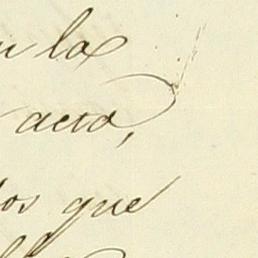 la
acta,
os que